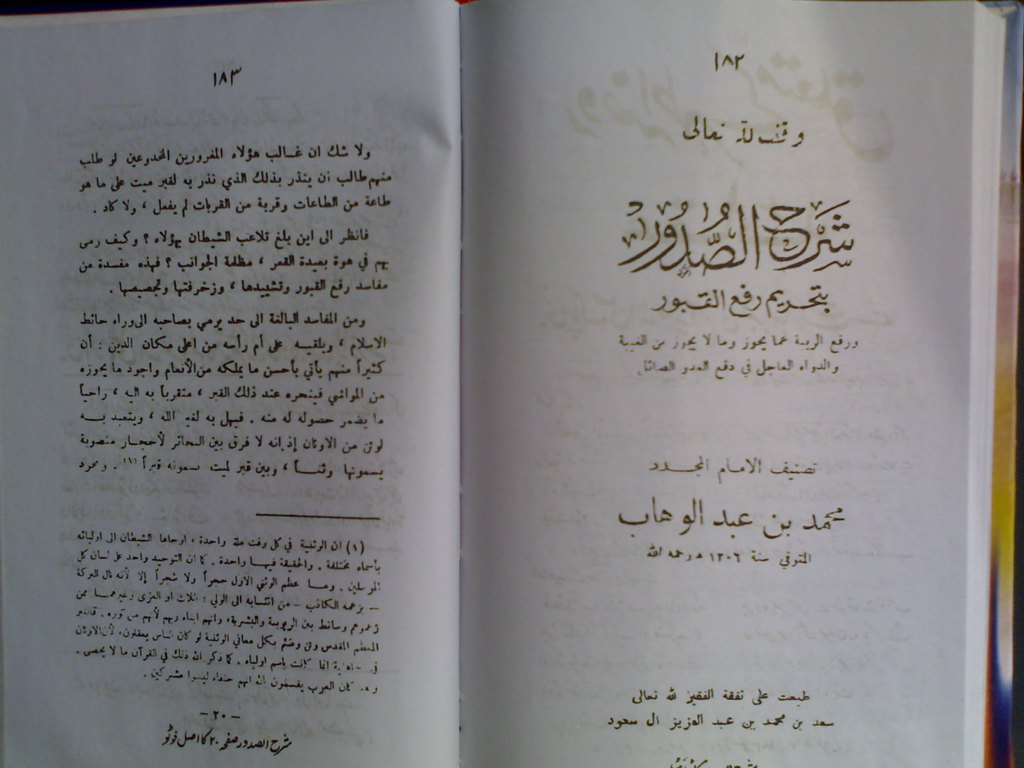 ١٨٢
وقف لله تعالى
شرح الصدور
بتحريم رفع القبور
ورفع الريبة عما يجوز وما لا يجوز من الغيبة
والدواء العاجل في دفع العدو الصائل
تصنيف الامام المجدد
محمد بن عبد الوهاب
المتوفي سنة ١٢٠٦ ه رحمه الله
طبعت على نفقة الفقير لله تعالى
سعد بن محمد بن عبد العزيز ال سعود
١٨٣
ولا شك ان غالب هؤلاء المغرورين المخدوعين لو طلب
منهم طالب أن ينذر بذلك الذي نذر به لقبر ميت على ما هو
طاعة من الطاعات وقربة من القربات لم يفعل ، ولا كاد .
فانظر الى اين بلغ تلاعب الشيطان بهؤلاء ؟ وكيف رمى
بهم في هوة بعيدة القعر ، مظلمة الجوانب ؟ فهذه مفسدة من
مفاسد رفع القبور وتشييدها ، وزخرفتها وتجصيصها .
ومن المفاسد البالغة الى حد يرمي بصاحبه الى وراء حائط
الاسلام ، ويلقيه على أم رأسه من اعلى مكان الدين : أن
كثيراً منهم يأتي بأحسن ما يملكه من الأنعام واجود ما يحوزه
من المواشي فينحره عند ذلك القبر ، متقرباً به اليه ، راجياً
ما يضمر حصوله له منه . فيهل به لغير الله ، ويتعبد به
لوثن من الاوثان إذ انه لا فرق بين النحائر لأحجار منصوبة
يسمونها وثناً ، وبين قبر لميت يسمونه قبراً (١) . ومجرد
(١) ان الوثنية في كل وقت ملة واحدة ، اوحاها الشيطان الى اوليائه
بأسماء مختلفة . والحقيقة فيها واحدة . كما ان التوحيد واحد على لسان كل
المرسلين . وما عظم الوثني الاول حجراً ولا شجراً إلا لأنه نال البركة
– بزعمه الكاذب – من انتسابه الى الولي : اللات او العزى وغيرهما ممن
زعموهم وسائط بين الربوبية والبشرية، وانهم ابناء ربهم لأنهم من نوره .
المعظم المقدس وثن وصنم بكل معاني الوثنية لو كان الناس يعقلون، لأن الاوثان
في الجاهلية انما كانت باسم اولياء . كما ذكر الله ذلك في القرآن ما لا يحصى .
كان العرب يقسمون انهم حنفاء ليسوا مشركين .
– ٢٠ –
شرح الصدور صفحہ ٢٠ کا اصل فوٹو